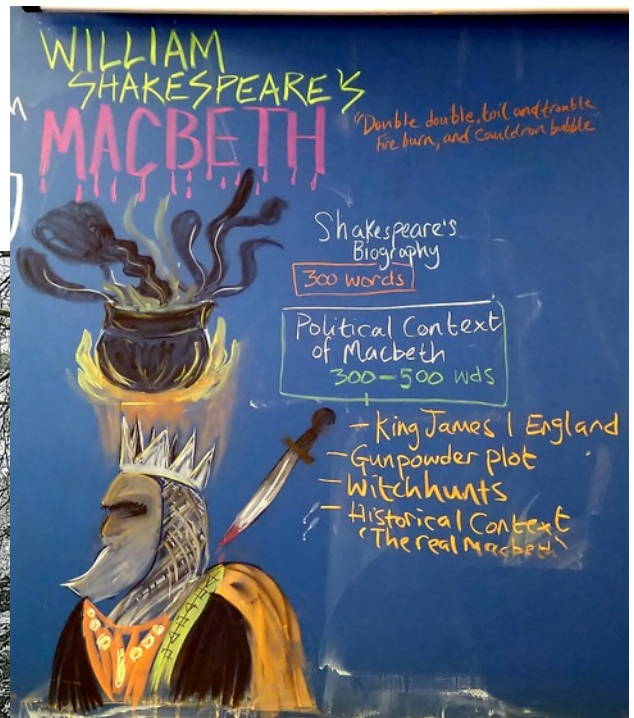 WILLIAM
SHAKESPEARE'S
MACBETH
"Double double, toil and trouble
Fire burn, and cauldron bubble"
Shakespeare's
Biography
300 words
Political Context
of Macbeth
300-500 wds
- King James I England
- Gunpowder plot
- Witchhunts
- Historical Context
"The real Macbeth"